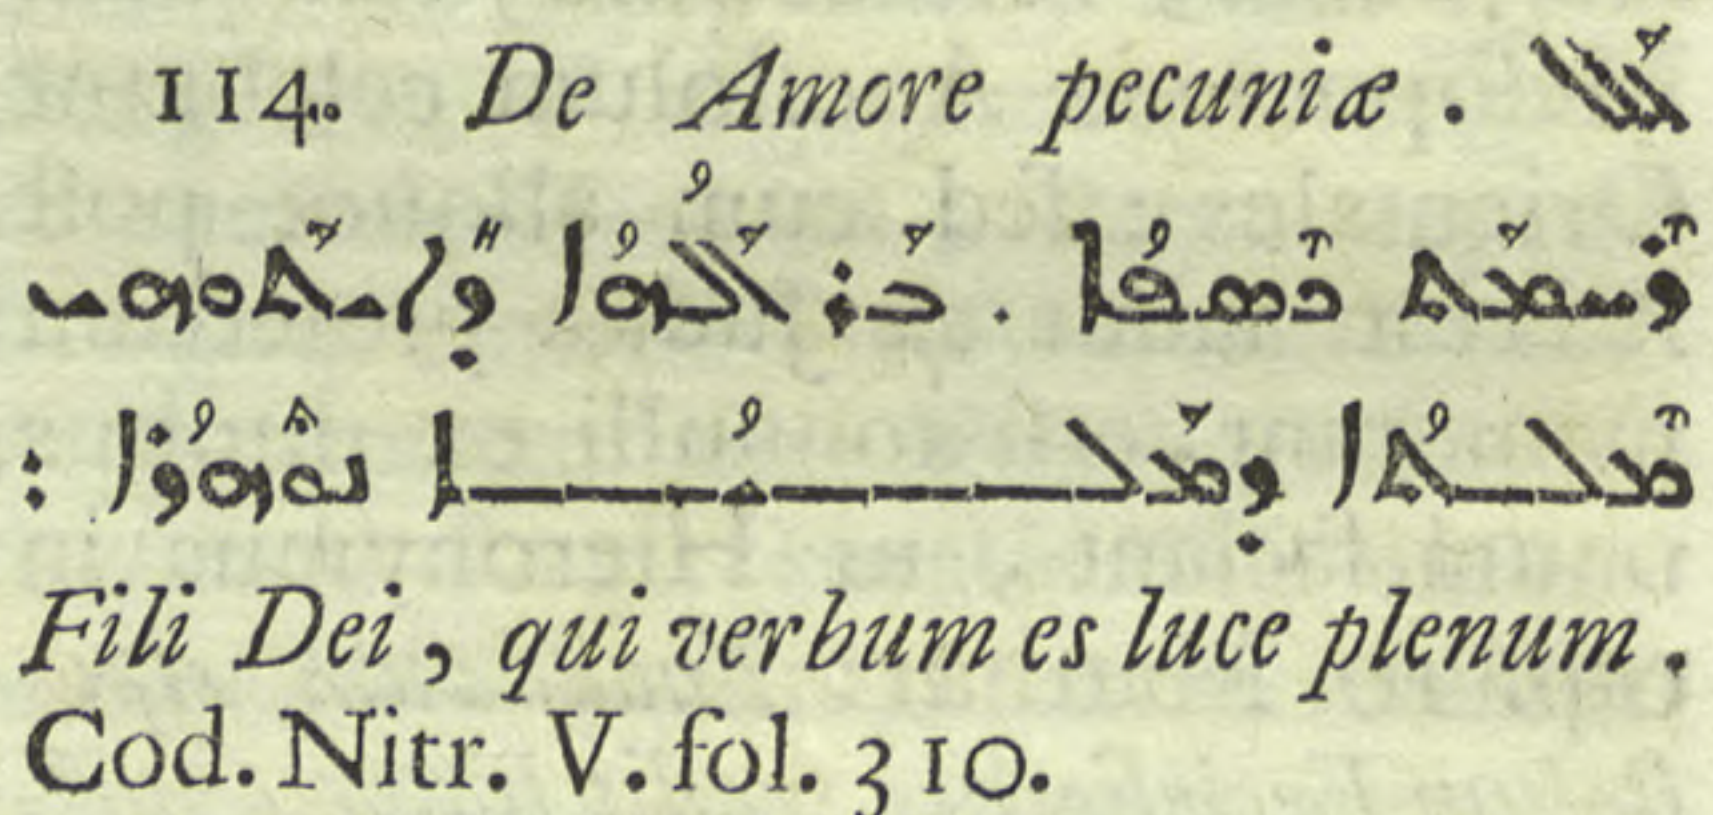 114. De Amore pecuniæ . ܥܰܠ
ܪܶܚܡܰܬ ܟܶܣܦܳܐ . ܒܰܪ ܐܰܠܳܗܳܐ ܕܺܐܝܬܰܘܗܝ
ܡܶܠܬܳܐ ܕܡܰܠܝܳܐ ܢܽܘܗܪܳܐ :
Fili Dei, qui verbum es luce plenum.
Cod. Nitr. V. fol. 310.